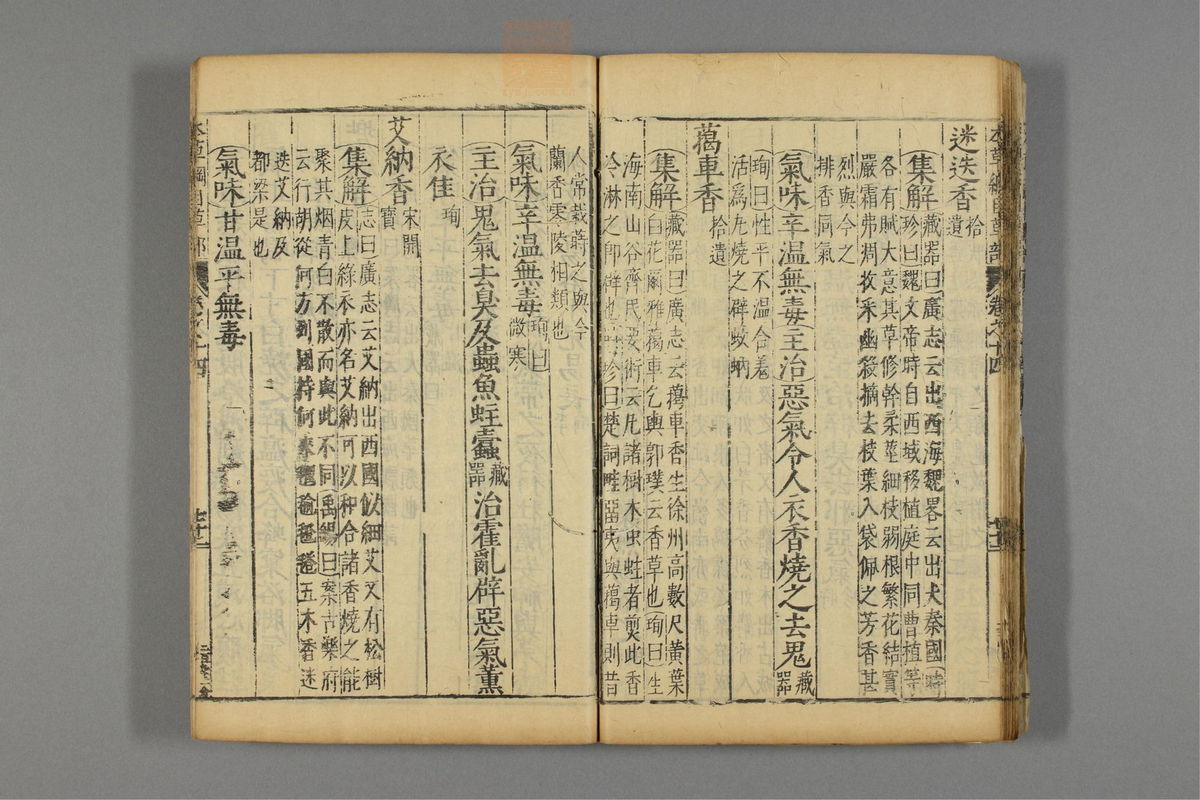 本草綱目草部 卷之十四
迷迭香拾遺
集解藏器曰廣志云出西海魏畧云出大秦國時
珍曰魏文帝時自西域移植庭中同曹植等
各有賦大意其草修幹柔莖細枝弱根繁花結實
嚴霜弗凋收采幽殺摘去枝葉入袋佩之芳香甚
烈與今之
排香同氣
氣味辛温無毒主治惡氣令人衣香燒之去鬼藏器
珣曰性平不温合羌
活爲丸燒之辟蚊蚋
藒車香拾遺
集解藏器曰廣志云藒車香生徐州高數尺黄葉
白花爾雅藒車乞輿郭璞云香草也珣曰生
海南山谷齊民要術云凡諸樹木虫蛀者煎此香
冷淋之即辟也時珍曰楚詞畦留夷與藒車則昔
人常栽蒔之與今
蘭香零陵相類也
氣味辛温無毒珣曰微寒
主治鬼氣去臭及蟲魚蛀蠹藏器治霍亂辟惡氣薰
衣佳珣
艾納香宋開寶
集解志曰廣志云艾納出西國似細艾又有松樹
皮上綠衣亦名艾納可以和合諸香燒之能
聚其烟青白不散而與此不同禹錫曰案古樂府
云行胡從何方列國持何來氍毹㲪五木香迷
迭艾納及
都梁是也
氣味甘温平無毒
本草綱目草部 卷之十四